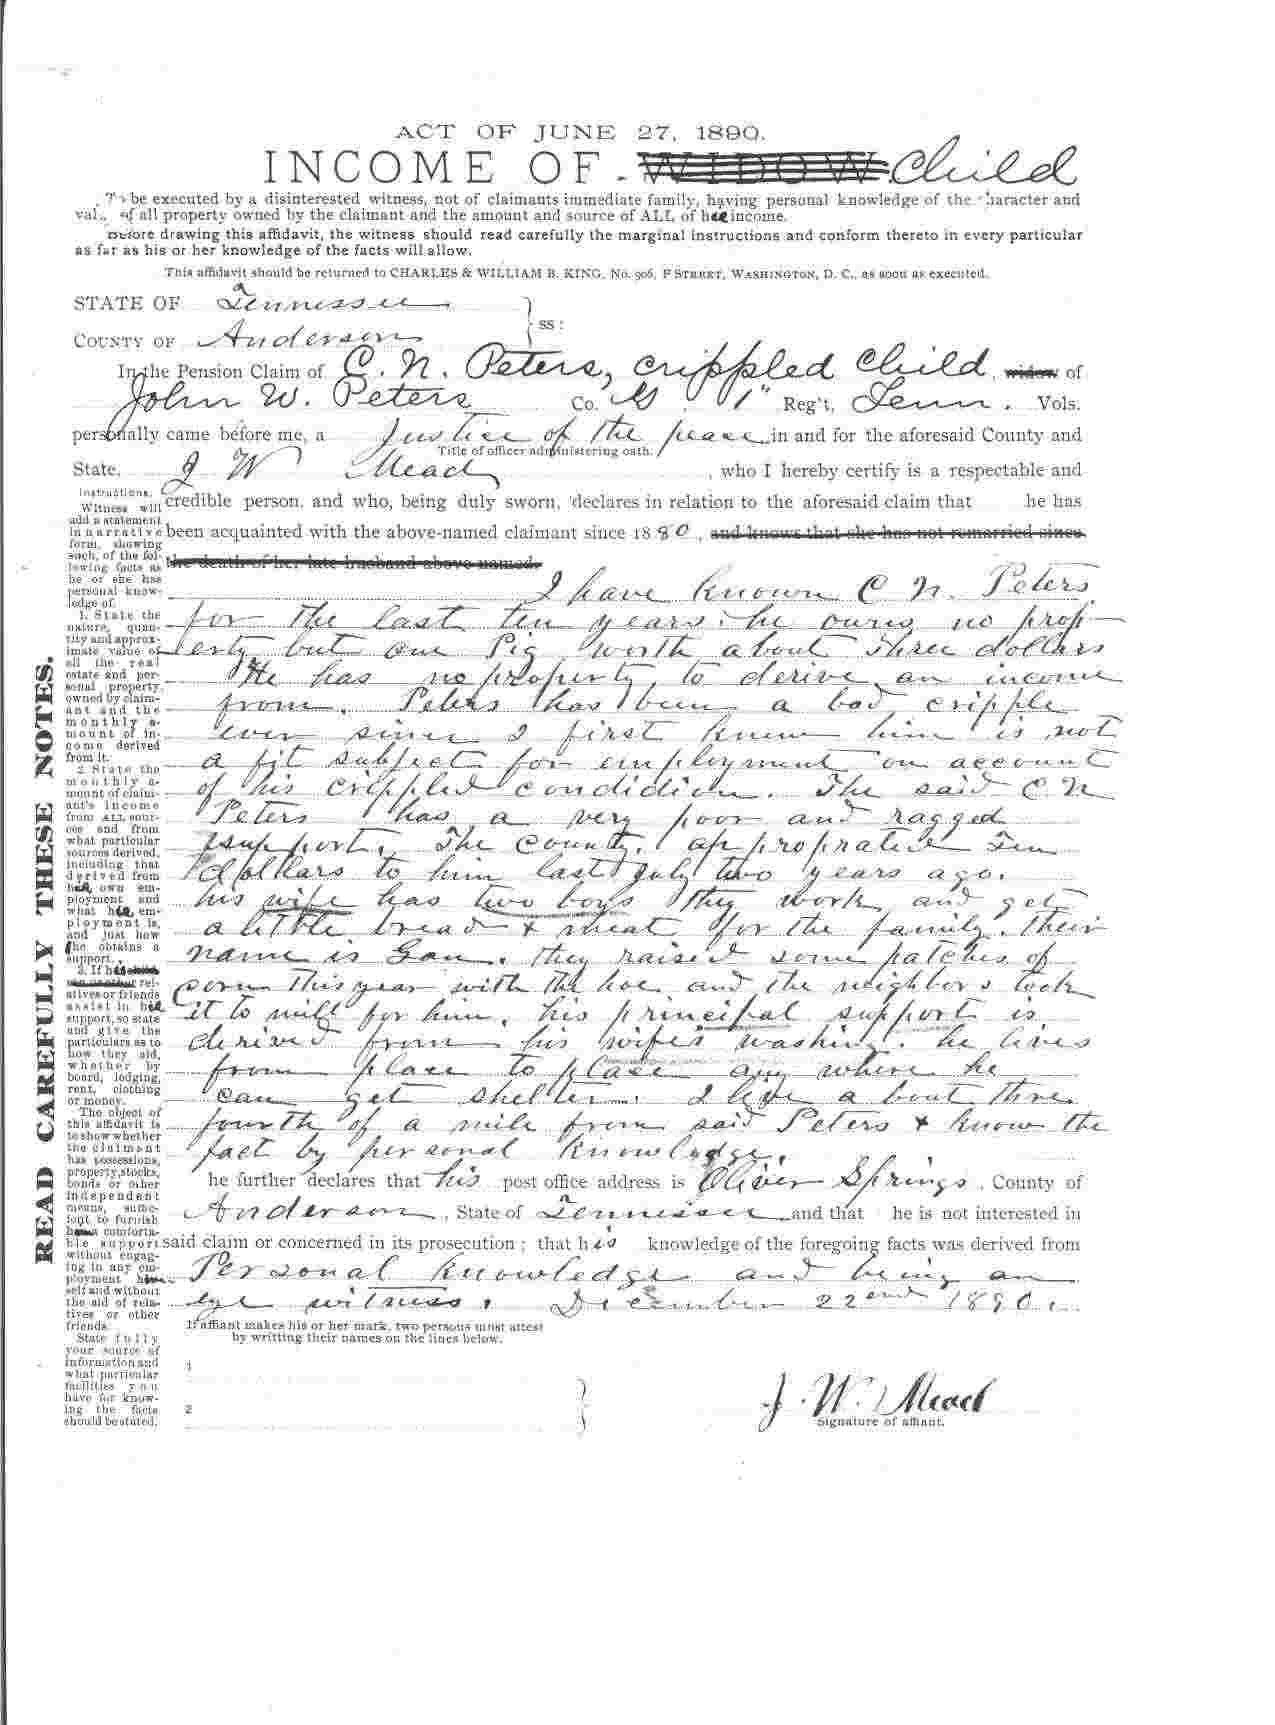 ACT OF JUNE 27, 1890.
INCOME OF WIDOW Child
To be executed by a disinterested witness, not of claimants immediate family, having personal knowledge of the character and
of all property owned by the claimant and the amount and source of ALL of income.
Before drawing this affidavit, the witness should read carefully the marginal instructions and conform thereto in every particular
as far as his or her knowledge of the facts will allow.
This affidavit should be returned to CHARLES & WILLIAM B. KING, No. 906, F STREET, WASHINGTON, D. C., as soon as executed.
STATE OF Tennessee
ss:
COUNTY OF Anderson
In the Pension Claim of C. N. Peters, crippled child, widow of
John W. Peters Co. G 1" Reg't, Tenn. Vols.
personally came before me, a Justice of the peace in and for the aforesaid County and
Title of officer administering oath.
State, J W Mead, who I hereby certify is a respectable and
credible person, and who, being duly sworn, declares in relation to the aforesaid claim that he has
been acquainted with the above-named claimant since 1880, and knows that she has not remarried since
the death of her late husband above named.
I have known C N. Peters
for the last ten years. he owns no prop
erty but one Pig worth about Three dollars
He has no property to derive an income
from. Peters has been a bad cripple
ever since I first knew him is not
a fit subject for employment on account
of his crippled condidion. The said C N
Peters has a very poor and ragged
support. The county. appropratied Ten
dollars to him last July two years ago.
his wife has two boys they work and get
a little bread & meat for the family. Their
name is they raised some patches of
corn This year with the hoe and the neighbors took
it to mill for him. his principal support is
derived from his wife's washing. he lives
from place to place any where he
can get shelter. I live a bout three
fourth of a mile from said Peters & know the
fact by personal knowledge.
he further declares that his post office address is Oliver Springs, County of
Anderson, State of Tennessee and that he is not interested in
said claim or concerned in its prosecution; that his knowledge of the foregoing facts was derived from
Personal knowledge and being an
eye witness. December 22end 1890.
If affiant makes his or her mark, two persons must attest
by writting their names on the lines below.
1
2
J. W. Mead
Signature of affiant.
READ CAREFULLY THESE NOTES.
Instructions.
Witness will
add a statement
in narrative
form, showing
such, of the fol-
lowing facts as
he or she has
personal know-
ledge of.
1. State the
nature, quan-
tity and approx-
imate value of
all the real
estate and per-
sonal property,
owned by claim-
ant and the
monthly a-
mount of in-
come derived
from it.
2. State the
monthly a-
mount of claim-
ant's income
from ALL sour-
ces and from
what particular
sources derived,
including that
derived from
own em-
ployment and
what em-
ployment is,
and just how
he obtains a
support.
3. If
rel-
atives or friends
assist in
support, so state
and give the
particulars as to
how they aid,
whether by
board, lodging,
rent, clothing
or money.
The object of
this affidavit is
to show whether
the claimant
has possessions,
property, stocks,
bonds or other
independent
means, suffic-
ient to furnish
a comforta-
ble support
without engag-
ing in any em-
ployment
self and without
the aid of rela-
tives or other
friends.
State fully
your source of
information and
what particular
facilities you
have for know-
ing the facts
should be stated.